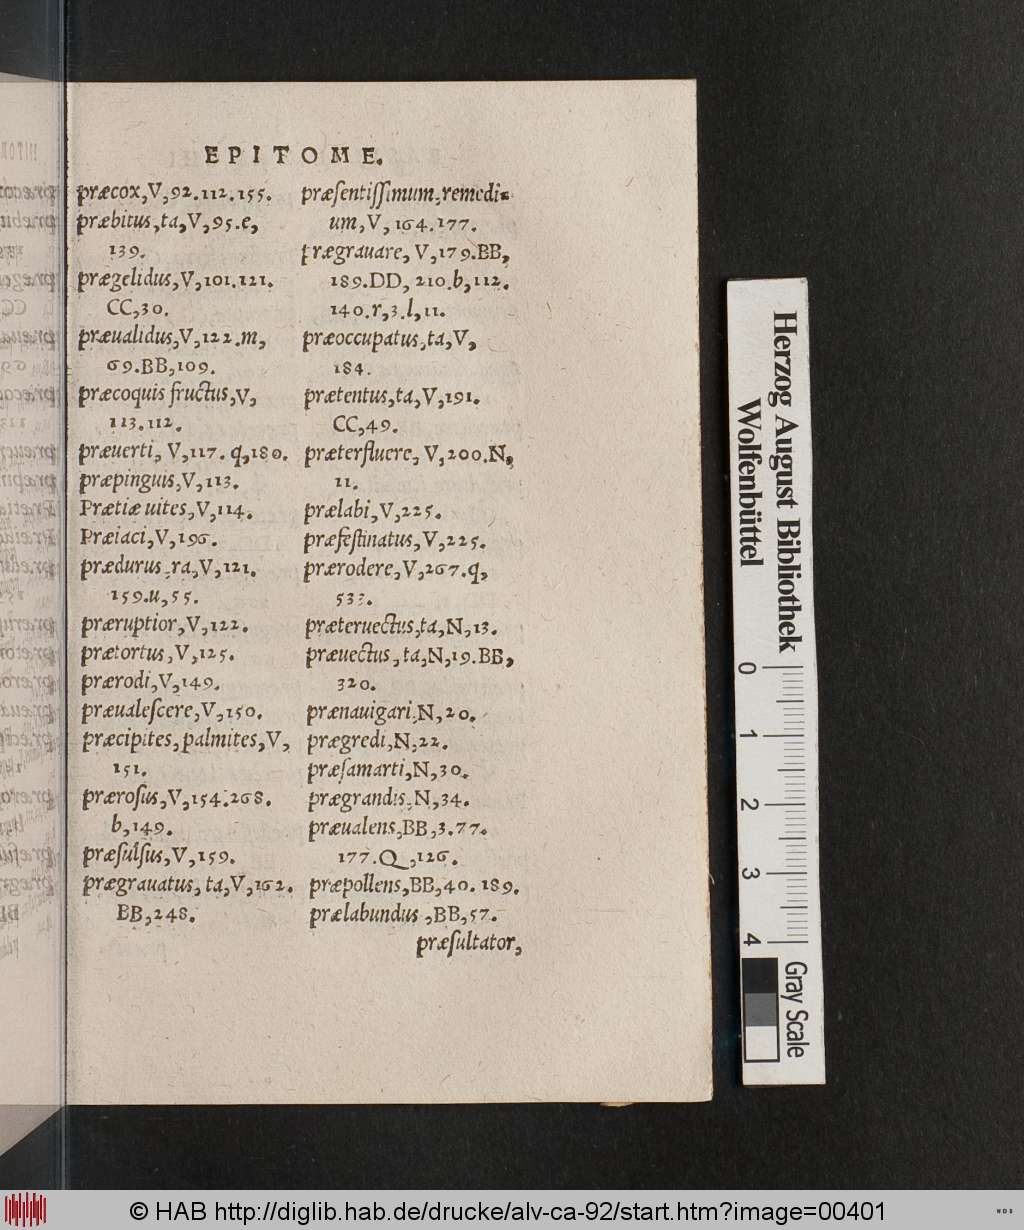 EPITOME.
præcox,V,92.112.155.
præbitus,ta,V,95.e,
139.
prægelidus,V,101.121.
CC,30.
præualidus,V,122.m,
69.BB,109.
præcoquis fructus,V,
113.112.
præuerti, V,117. q,180.
præpinguis,V,113.
Prætiæ uites,V,114.
Præiaci,V,196.
prædurus,ra,V,121.
159.u,55.
præruptior,V,122.
prætortus,V,125.
prærodi,V,149.
præualeſcere,V,150.
præcipites, palmites,V,
151.
præroſus,V,154.268.
b,149.
præſulſus,V,159.
prægrauatus, ta,V,162.
BB,248.
præſentiſſimum,remedi-
um,V,164.177.
prægrauare, V,179.BB,
189.DD, 210.b,112.
140.r,3.l,11.
præoccupatus,ta,V,
184.
prætentus,ta,V,191.
CC,49.
præterfluere, V,200.N,
11.
prælabi,V,225.
præfeſtinatus,V,225.
prærodere,V,267.q,
533.
præteruectus,ta,N,13.
præuectus,ta,N,19.BB,
320.
prænauigari,N,20.
prægredi,N,22.
præſamarti,N,30.
prægrandis,N,34.
præualens,BB,3.77.
177.Q,126.
præpollens,BB,40.189.
prælabundus ,BB,57.
præſultator,
Herzog August Bibliothek
Wolfenbüttel
0 1 2 3 4
Gray Scale
© HAB http://diglib.hab.de/drucke/alv-ca-92/start.htm?image=00401